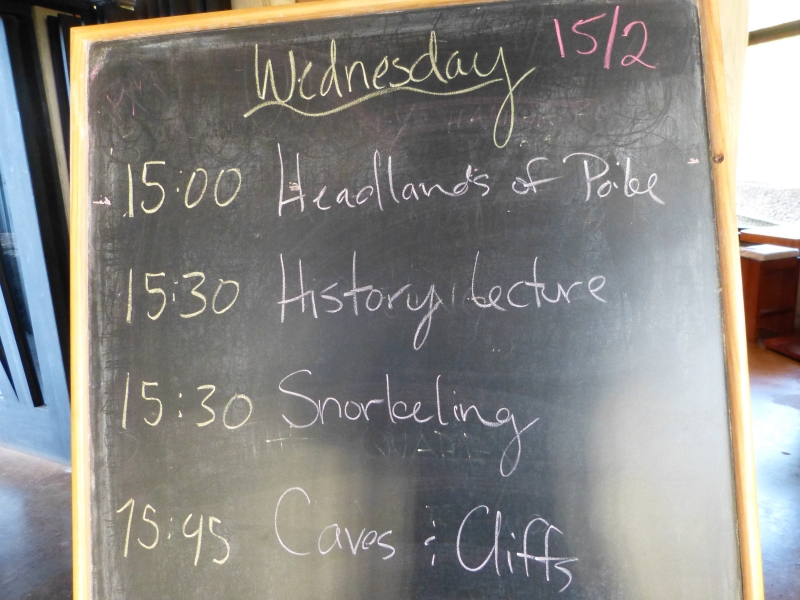 Wednesday 15/2
15:00 Headlands of Poike
15:30 History Lecture
15:30 Snorkeling
15:45 Caves & Cliffs